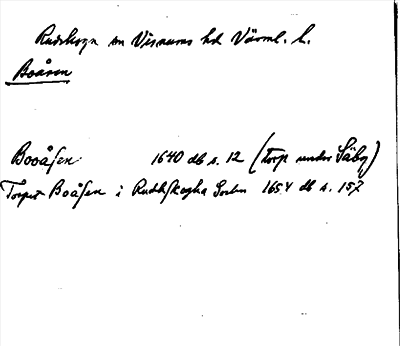 Rudskoga sn Visnums hd Värml. l.
Boåsen
Booåsen 1640 db s. 12 (torp under Säby)
Torpet Boåsen i Rudhskogha Sochn 1654 db s. 157